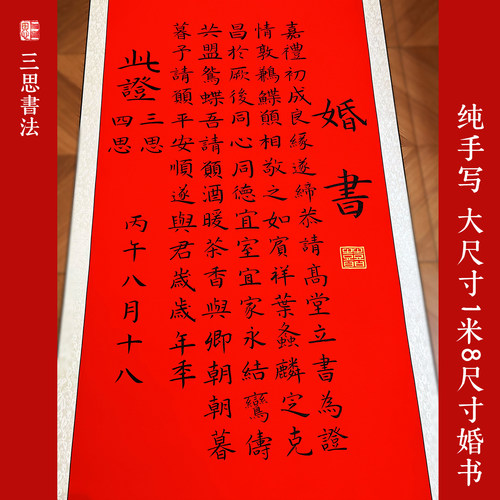 三思書法
纯手写 大尺寸1米8尺寸婚书
婚書
嘉禮初成良緣遂締恭請髙堂立書為證
情敦鶼鰈願相敬之如賓祥葉螽麟定克
昌於厥後同心同德宜室宜家永結鸞儔
共盟鴛蝶吾請願酒暖茶香與卿朝朝暮
暮予請願平安順遂與君歲歲年年
此證
三思
四思
丙午八月十八